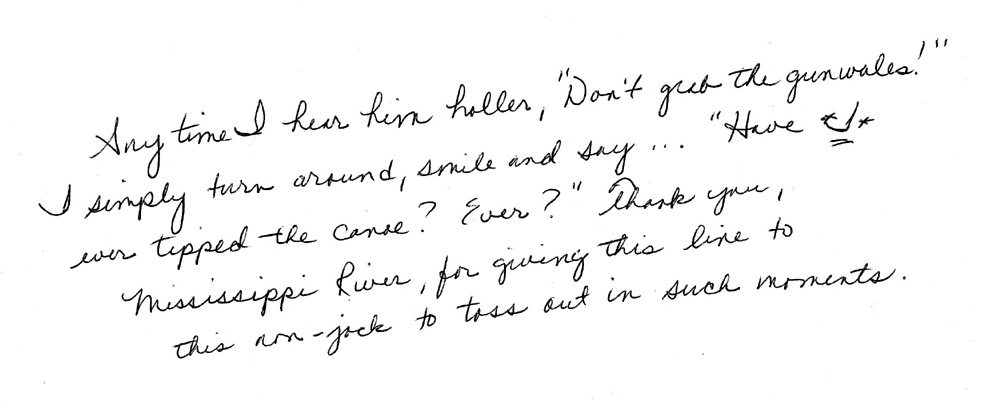 Any time I hear him holler, "Don't grab the gunwales!"
I simply turn around, smile and say ... "Have *I*
ever tipped the canoe? Ever?" Thank you,
Mississippi River, for giving this line to
this non-jock to toss out in such moments.